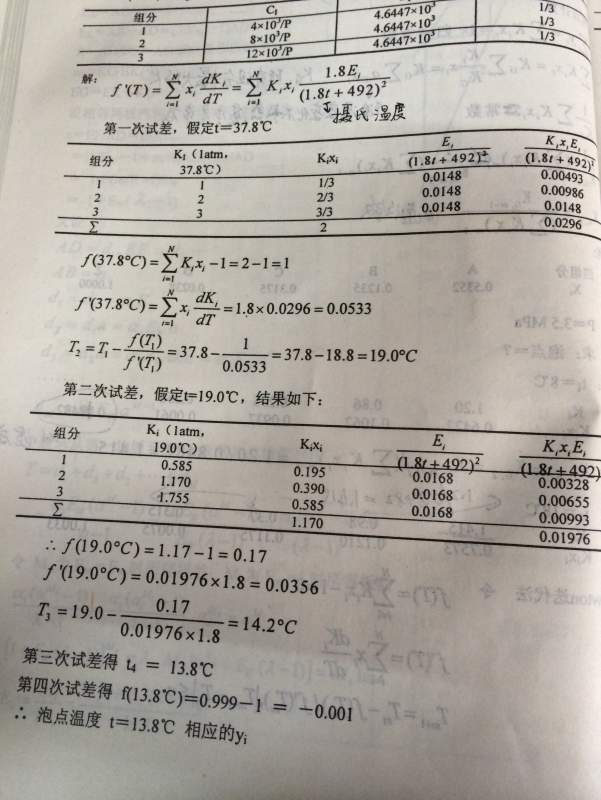 组分 C₁
1 4×10³/P 4.6447×10³ 1/3
2 8×10³/P 4.6447×10³ 1/3
3 12×10³/P 4.6447×10³ 1/3
解: f'(T)=∑_{i=1}^{N} x_i dK_i/dT=∑_{i=1}^{N} K_i x_i 1.8E_i/(1.8t+492)²
摄氏温度
第一次试差，假定t=37.8℃
组分 K_I（1atm, 37.8℃） K_ix_i E_i/(1.8t+492)² K_ix_iE_i/(1.8t+492)²
1 1 1/3 0.0148 0.00493
2 2 2/3 0.0148 0.00986
3 3 3/3 0.0148 0.0148
∑ 2 0.0296
f(37.8°C)=∑_{i=1}^{N} K_ix_i-1=2-1=1
f'(37.8°C)=∑_{i=1}^{N} x_i dK_i/dT=1.8×0.0296=0.0533
T₂=T₁-f(T₁)/f'(T₁)=37.8-1/0.0533=37.8-18.8=19.0°C
第二次试差，假定t=19.0℃，结果如下：
组分 K_i（1atm, 19.0℃） K_ix_i E_i/(1.8t+492)² K_ix_iE_i/(1.8t+492)
1 0.585 0.195 0.0168 0.00328
2 1.170 0.390 0.0168 0.00655
3 1.755 0.585 0.0168 0.00993
∑ 1.170 0.01976
∴ f(19.0°C)=1.17-1=0.17
f'(19.0°C)=0.01976×1.8=0.0356
T₃=19.0-0.17/(0.01976×1.8)=14.2°C
第三次试差得 t₄ = 13.8℃
第四次试差得 f(13.8℃)=0.999-1 = -0.001
∴ 泡点温度 t=13.8℃ 相应的y_i